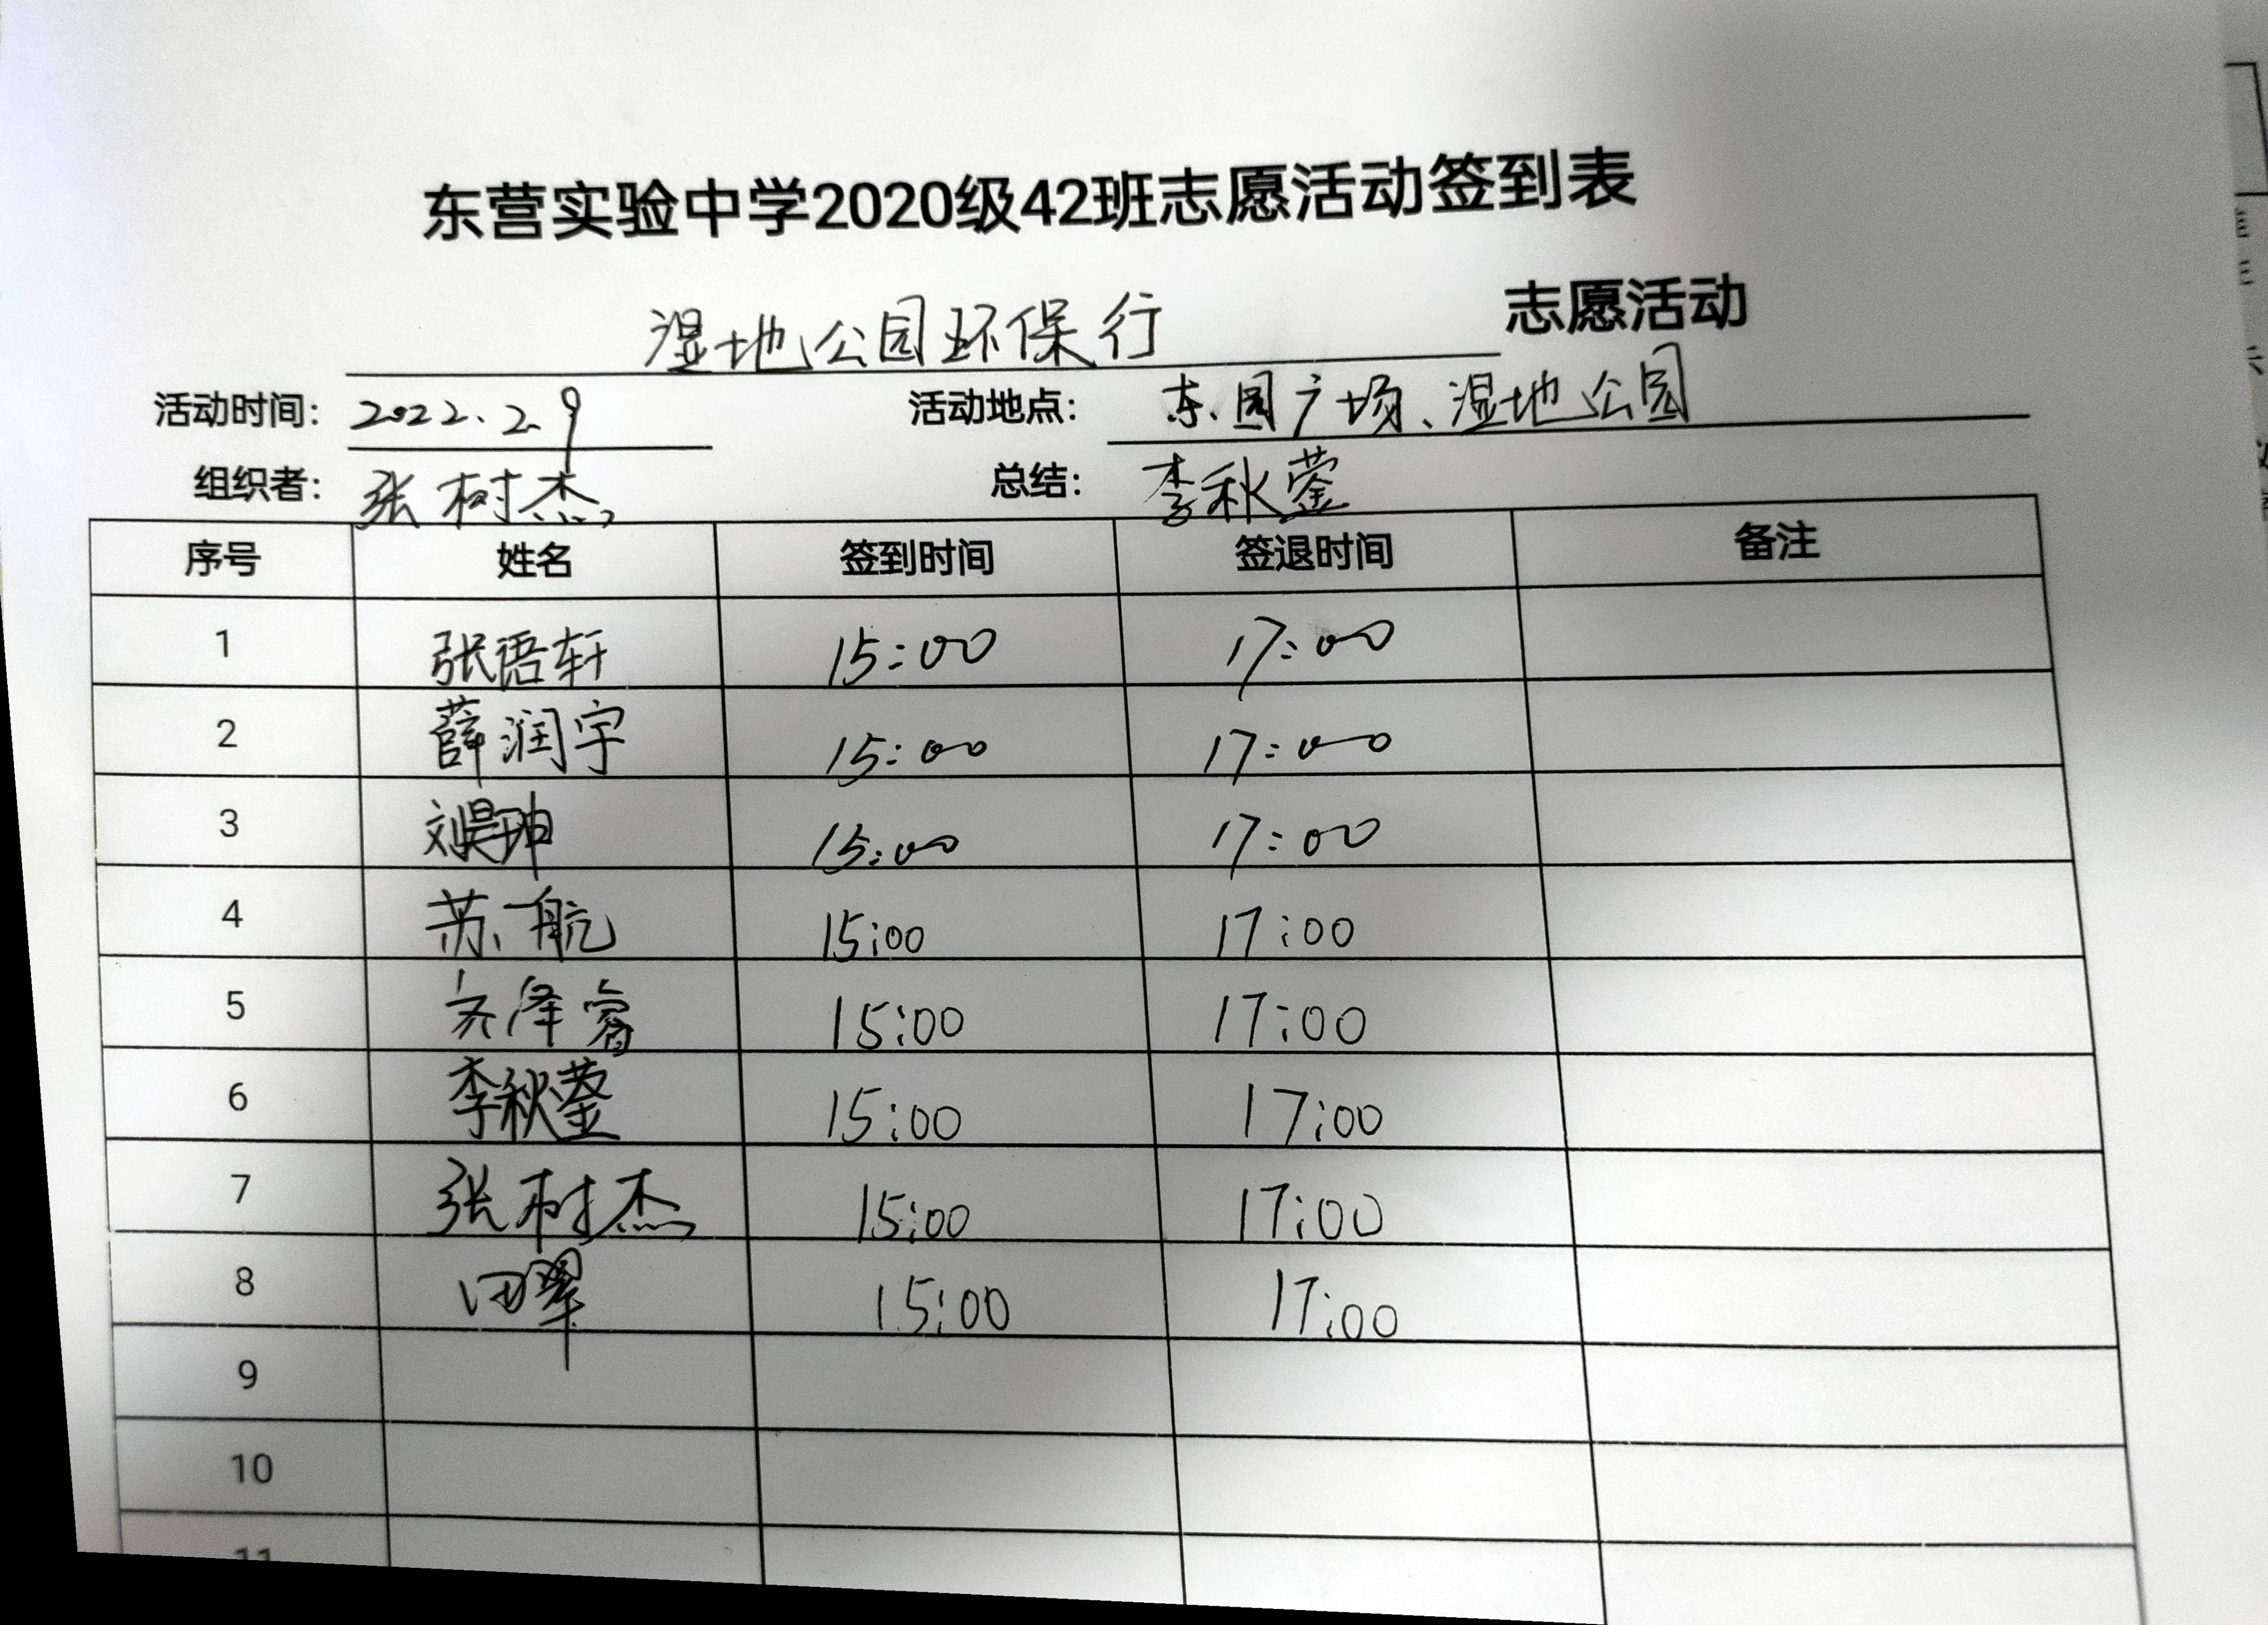 东营实验中学2020级42班志愿活动签到表
湿地公园环保行 志愿活动
活动时间: 2022.2.9 活动地点: 东园广场、湿地公园
组织者: 张树杰 总结: 李秋蓥
序号 姓名 签到时间 签退时间 备注
1 张语轩 15:00 17:00
2 薛润宇 15:00 17:00
3 15:00 17:00
4 苏一航 15:00 17:00
5 齐泽睿 15:00 17:00
6 李秋蓥 15:00 17:00
7 张树杰 15:00 17:00
8 田翠 15:00 17:00
9
10
11